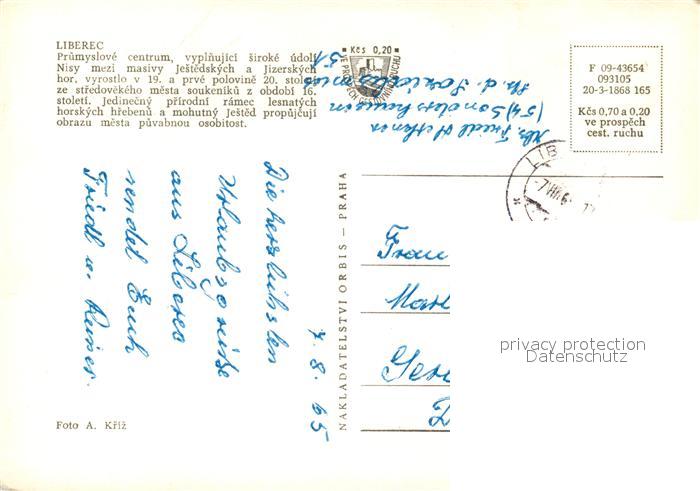 LIBEREC
Průmyslové centrum, vyplňující široké údolí
Nisy mezi masivy Ještědských a Jizerských
hor, vyrostlo v 19. a prvé polovině 20. století
ze středověkého města soukeníků z období 16.
století. Jedinečný přírodní rámec lesnatých
horských hřebenů a mohutný Ještěd propůjčují
obrazu města půvabnou osobitost.
Kčs 0,20
F 09-43654
093105
20-3-1868 165
Kčs 0,70 a 0,20
ve prospěch
cest. ruchu
Abs. Friedl
(54) Sondershausen
51
LIB
7.8.65
Die herzlichsten
Urlaubsgrüße
aus Liberec
sendet Euch
Friedl u. Reiner.
NAKLADATELSTVÍ ORBIS – PRAHA
Frau
Mar
Ger
D
privacy protection
Datenschutz
Foto A. Kříž